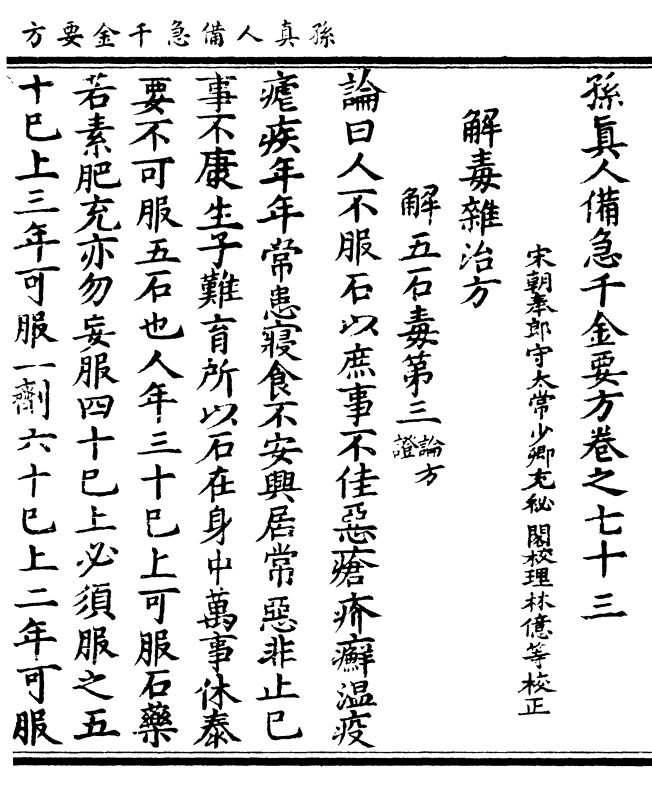 孫真人備急千金要方
孫真人備急千金要方卷之七十三
宋朝奉郎守太常少卿充秘閣校理林億等校正
解毒雜治方
解五石毒第三論方證
論曰人不服石以庶事不佳惡瘡疥癬温疫
瘧疾年年常患寢食不安興居常惡非止巳
事不康生子難育所以石在身中萬事休泰
要不可服五石也人年三十巳上可服石藥
若素肥充亦勿妄服四十巳上必須服之五
十巳上三年可服一劑六十巳上二年可服